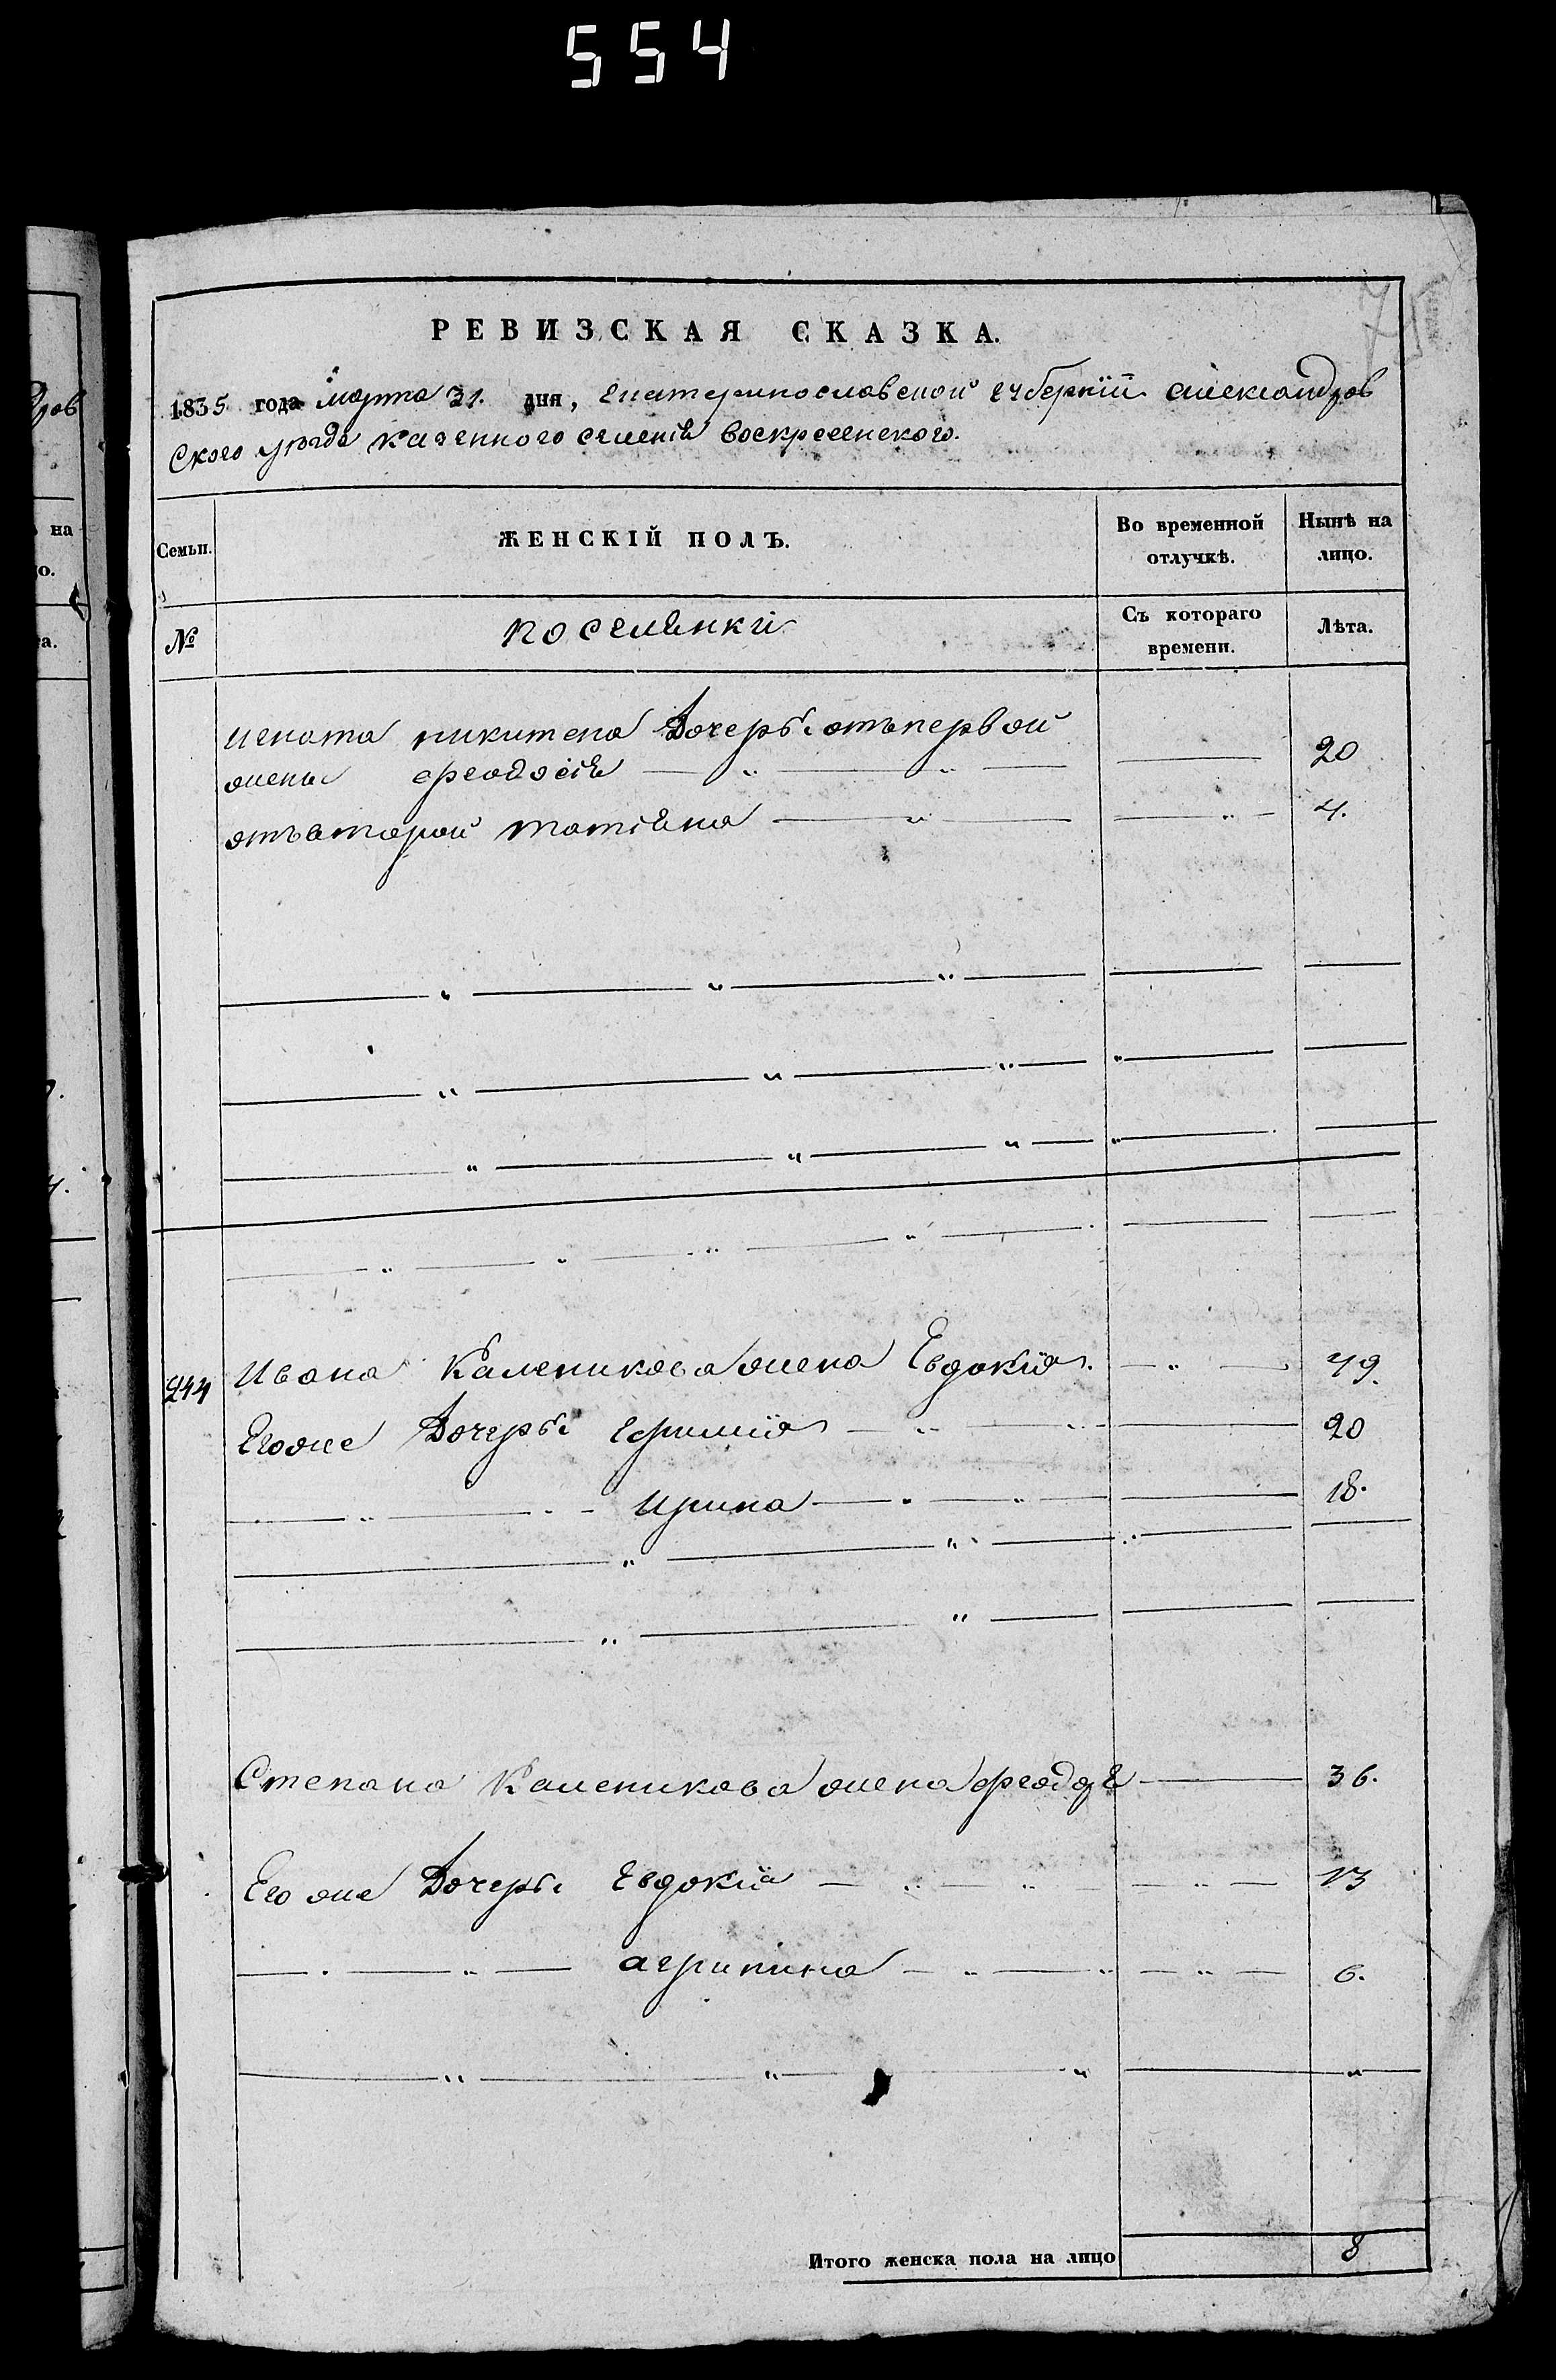 554
РЕВИЗСКАЯ СКАЗКА.
1835 года марта 31. дня, Екатеринославской губернїи александров
ского уезда казенного селенія воскресенского.
Семьи.
ЖЕНСКІЙ ПОЛЪ.
Во временной отлучкѣ.
Нынѣ на лицо.
№
поселянки
Съ котораго времени.
Лѣта.
игната никитена дочеры отъпервой
жены феодосія 20
отъвторой татіяна 4.
244 Ивана Каленикова жена Евдокія. 49.
Егоже дочеры ефимия 20
ирина 18.
Степана Каленикова жена феодоря 36.
Его же дочеры Евдокія 13
агрипина 6.
Итого женска пола на лицо 8